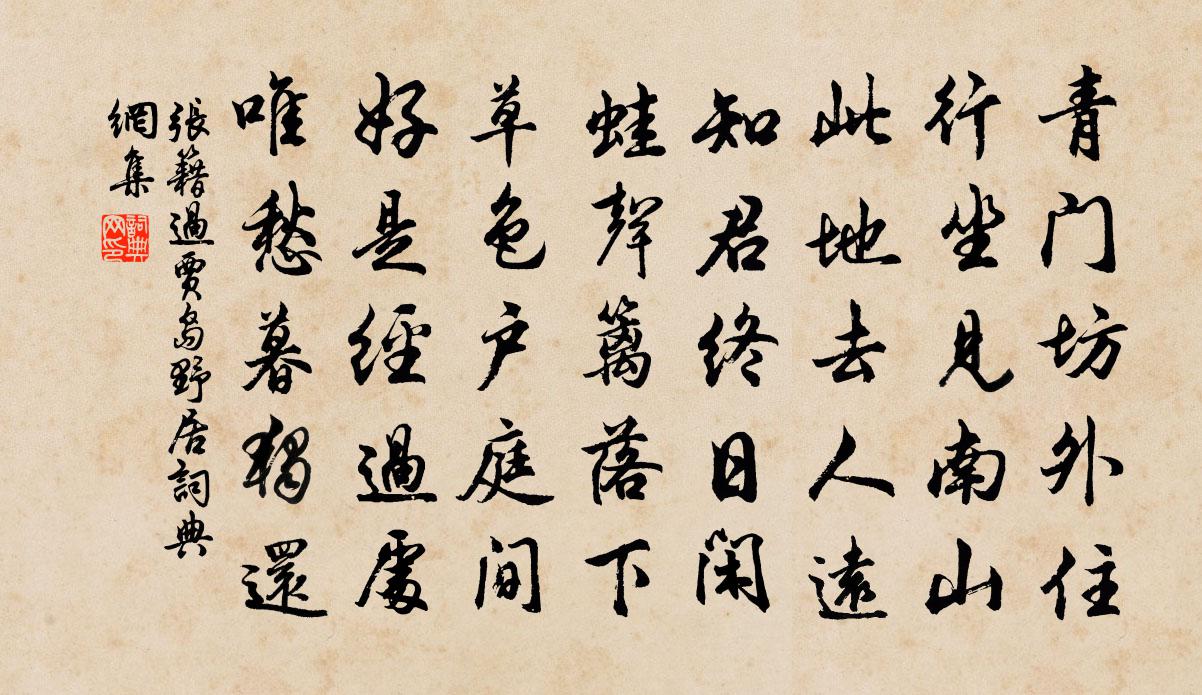 青门坊外住
行坐见南山
此地去人遠
知君终日闲
蛙聲篱落下
草色户庭间
好是經過處
唯愁暮獨還
張籍過賈島野居詞典
網集
詞典
网印